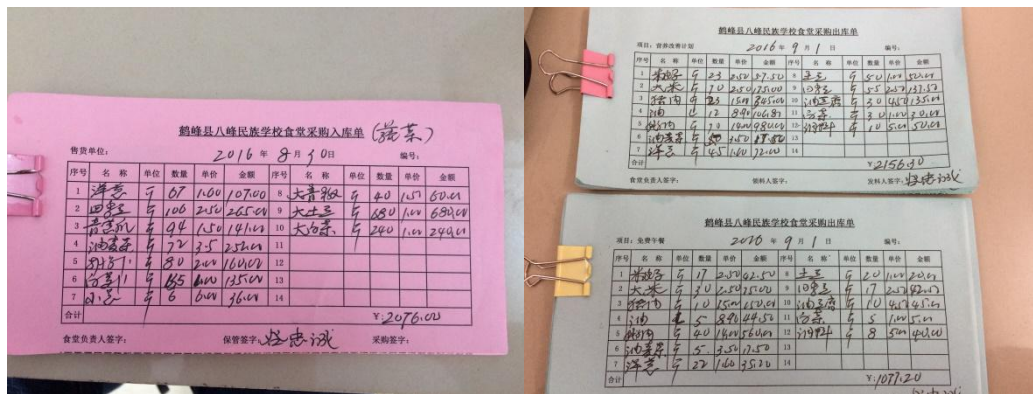 鹤峰县八峰民族学校食堂采购入库单 (蔬菜)
售货单位： 2016 年 8 月 30日 编号：
序号 名 称 单位 数量 单价 金额 序号 名 称 单位 数量 单价 金额
1 洋葱 斤 67 1.60 107.00 8 40 1.51 60.00
2 四季豆 斤 106 2.50 265.00 9 大土豆 斤 680 1.00 680.00
3 斤 94 1.50 141.00 10 大白菜 斤 240 1.00 240.00
4 油麦菜 斤 72 3.5 252.00 11
5 斤 80 2.00 160.00 12
6 斤 135.00 13
7 小葱 斤 6 6.00 36.00 14
合计 ¥:2076.00
食堂负责人签字： 保管签字： 采购签字：
鹤峰县八峰民族学校食堂采购出库单
项目：营养改善计划 2016 年 9 月 1 日 编号：
序号 名 称 单位 数量 单价 金额 序号 名 称 单位 数量 单价 金额
1 斤 23 2.50 57.50 8 土豆 斤 50 1.00 50.00
2 大米 斤 70 2.50 175.00 9 四季豆 斤 55 2.50 137.50
3 猪肉 斤 23 15.00 345.00 10 斤 30 4.50 135.00
4 油 12 8.90 106.80 11 白菜 斤 30 1.00 30.00
5 斤 70 14.00 980.00 12 斤 10 5.00 50.00
6 油麦菜 斤 3.50 13
7 洋葱 斤 45 1.60 72.00 14
合计 ¥2156.30
食堂负责人签字： 领料人签字： 发料人签字：
鹤峰县八峰民族学校食堂采购出库单
项目：免费午餐 2016 年 9 月 1 日 编号：
序号 名 称 单位 数量 单价 金额 序号 名 称 单位 数量 单价 金额
1 斤 17 2.50 42.50 8 土豆 斤 20 1.00 20.00
2 大米 斤 30 2.50 75.00 9 四季豆 斤 17 2.50 42.50
3 猪肉 斤 10 15.00 150.00 10 斤 10 4.50 45.00
4 油 5 8.90 44.50 11 白菜 斤 5 1.00 5.00
5 斤 40 14.00 560.00 12 斤 8 5.00 40.00
6 油麦菜 斤 5 3.50 17.50 13
7 洋葱 斤 22 1.60 35.20 14
合计 ¥:1077.20